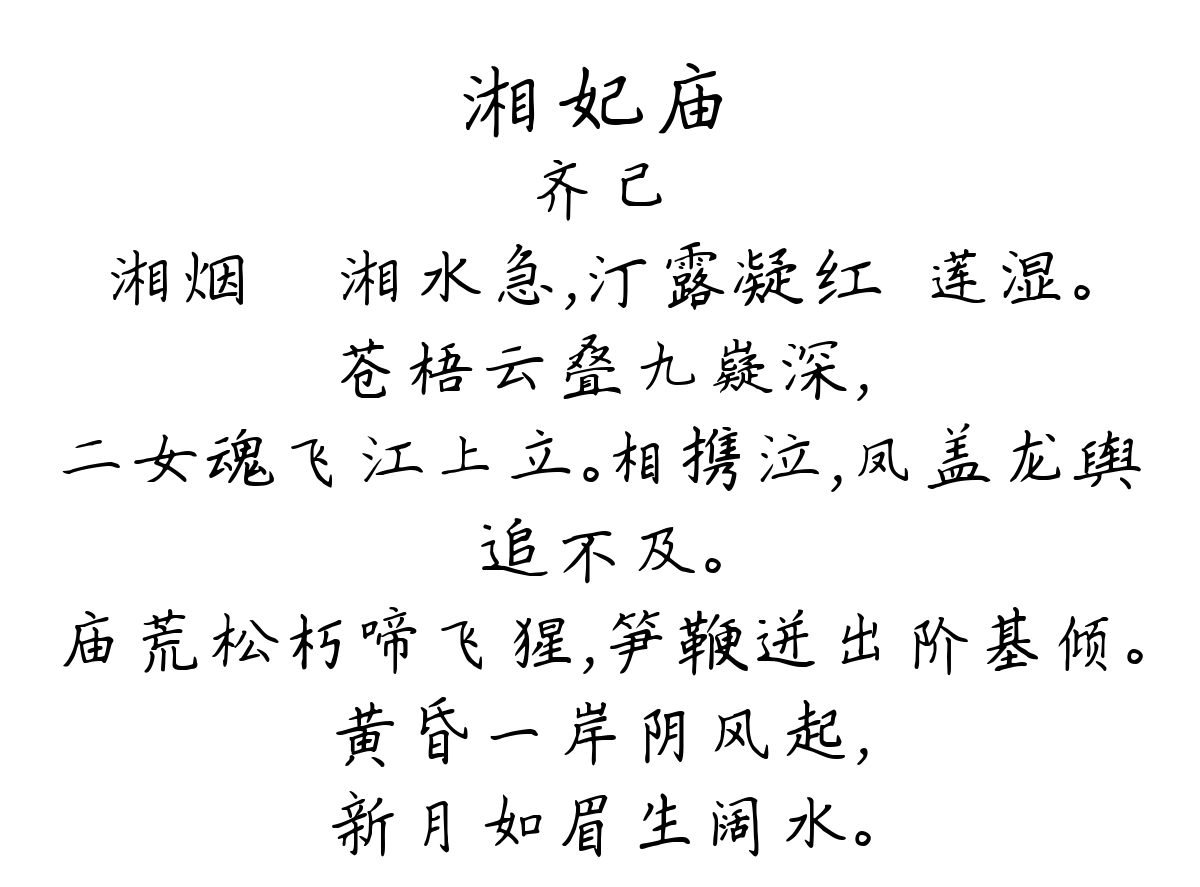 湘妃庙
齐己
湘烟 湘水急,汀露凝红 莲湿。
苍梧云叠九嶷深,
二女魂飞江上立。相携泣,凤盖龙舆
追不及。
庙荒松朽啼飞猩,笋鞭迸出阶基倾。
黄昏一岸阴风起,
新月如眉生阔水。